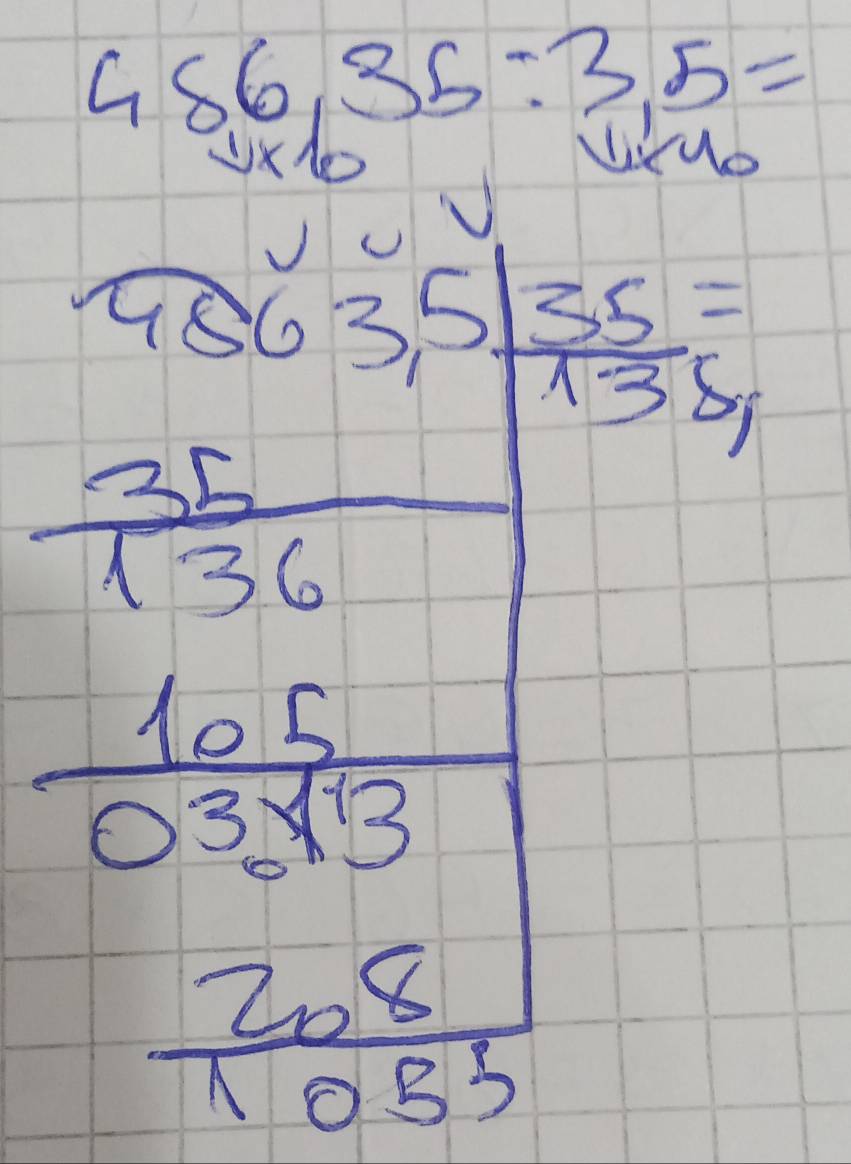 486,35:3,5=
↓×10 ↓×10
4863,5 35=
138,
35
136
105
03113
0
208
1055